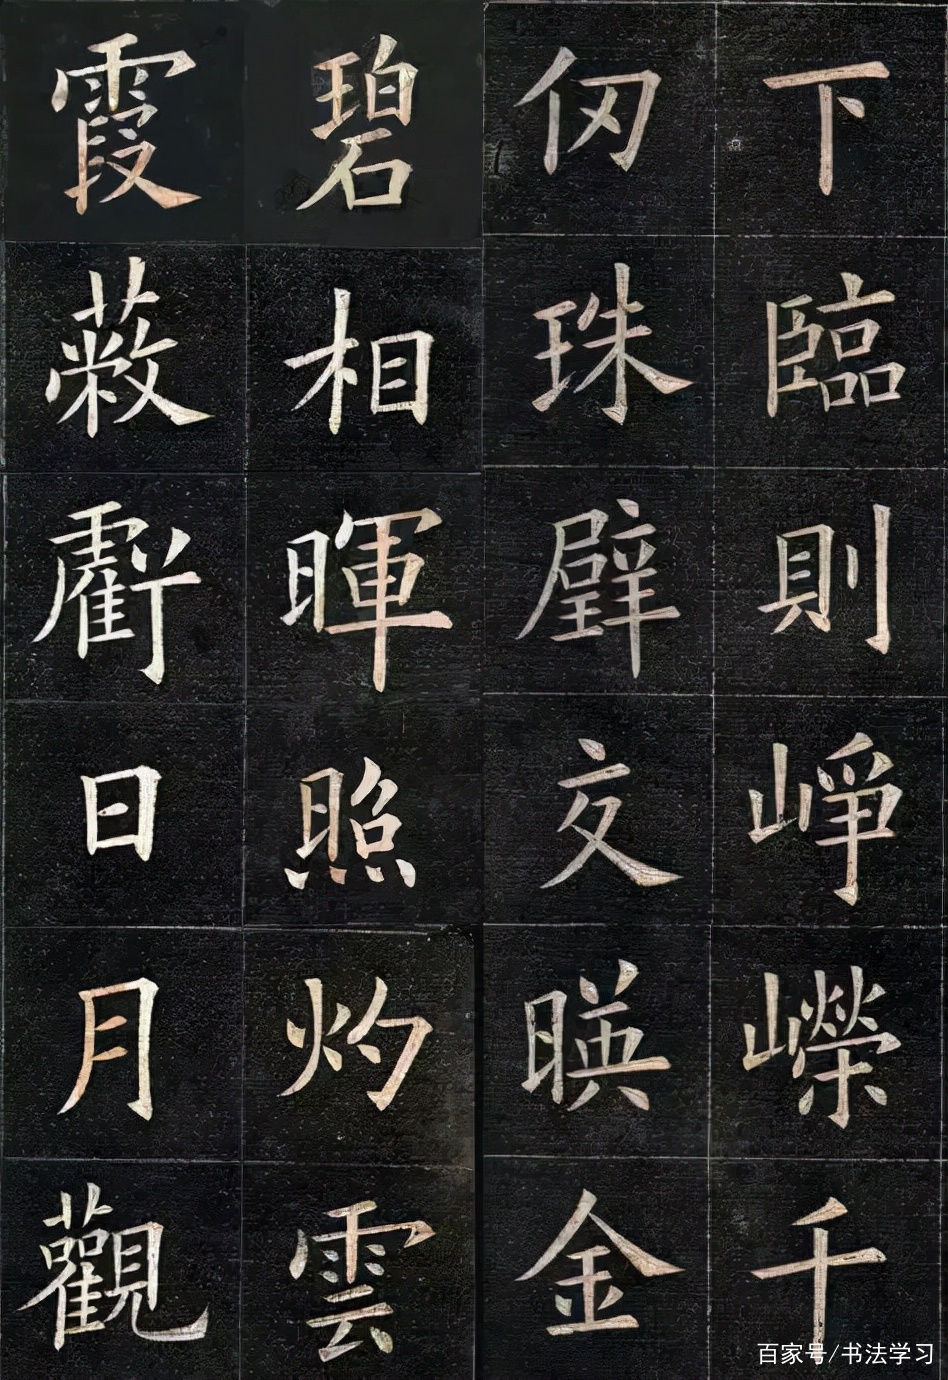 下臨則崢嶸千
仞珠壁交暎金
碧相暉照灼雲
霞蔽虧日月觀
百家号/书法学习